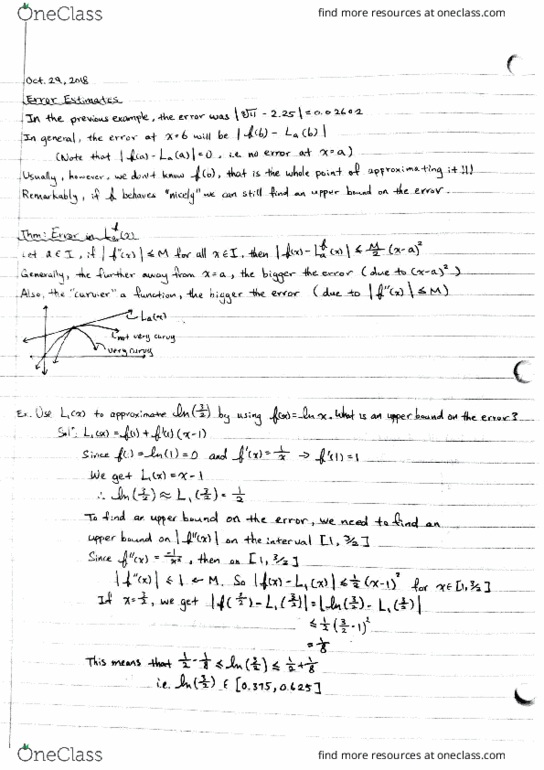 OneClass
find more resources at oneclass.com
Oct. 29, 2018
Error Estimates
In the previous example, the error was |∜11 - 2.25| = 0.02602
In general, the error at x=b will be |f(b) - Lₐ(b)|
(Note that |f(a) - Lₐ(a)| = 0, i.e. no error at x=a)
Usually, however, we don't know f(b), that is the whole point of approximating it!!!
Remarkably, if f behaves "nicely" we can still find an upper bound on the error.
Thm: Error in Lₐᶠ(x)
Let a ∈ I, if |f''(x)| ≤ M for all x ∈ I, then |f(x) - Lₐᶠ(x)| ≤ M/2 (x-a)²
Generally, the further away from x=a, the bigger the error (due to (x-a)²)
Also, the "curvier" a function, the bigger the error (due to |f''(x)| ≤ M)
Lₐ(x)
not very curvy
very curvy
Ex. Use L₁(x) to approximate ln(3/2) by using f(x) = ln x. What is an upper bound on the error?
Solⁿ: L₁(x) = f(1) + f'(1)(x-1)
Since f(1) = ln(1) = 0 and f'(x) = 1/x → f'(1) = 1
We get L₁(x) = x-1
∴ ln(3/2) ≈ L₁(3/2) = 1/2
To find an upper bound on the error, we need to find an
upper bound on |f''(x)| on the interval [1, 3/2]
Since f''(x) = -1/x², then on [1, 3/2]
|f''(x)| ≤ 1 ← M. So |f(x) - L₁(x)| ≤ 1/2 (x-1)² for x ∈ [1, 3/2]
If x = 3/2, we get |f(3/2) - L₁(3/2)| = |ln(3/2) - L₁(3/2)|
≤ 1/2 (3/2 - 1)²
= 1/8
This means that 1/2 - 1/8 ≤ ln(3/2) ≤ 1/2 + 1/8
i.e. ln(3/2) ∈ [0.375, 0.625]
OneClass
find more resources at oneclass.com